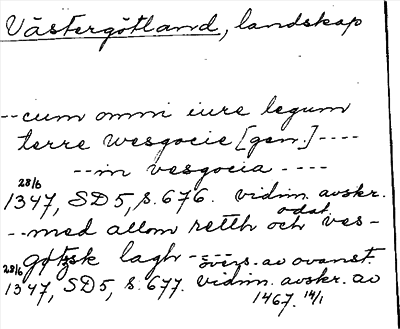 Västergötland, landskap
--cum omni iure legum
terre wesgocie [gen.] ----
--in vesgocia ----
28/6
1347, SD 5, s. 676. vidim. avskr.
odat.
--med allom retth och ves-
götzsk lagh - - - -
övers. av ovanst.
28/6
1347, SD 5, s. 677. vidim. avskr. av
1467. 14/1